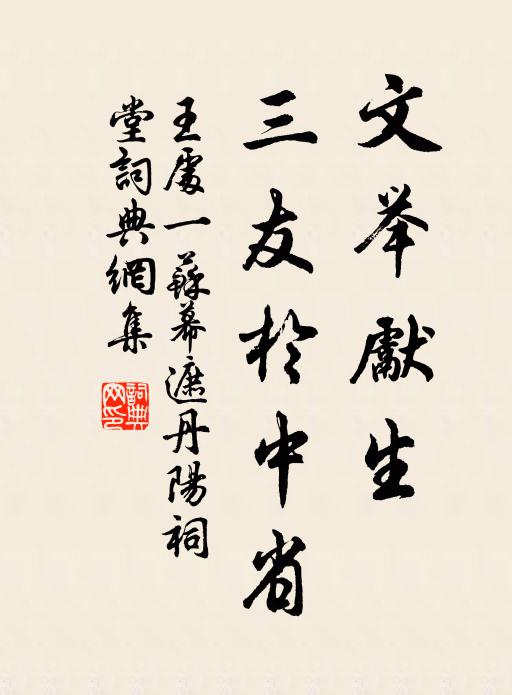 文举獻生
三友於中省
王處一蘇幕遮丹陽祠
堂詞典網集
詞典網印